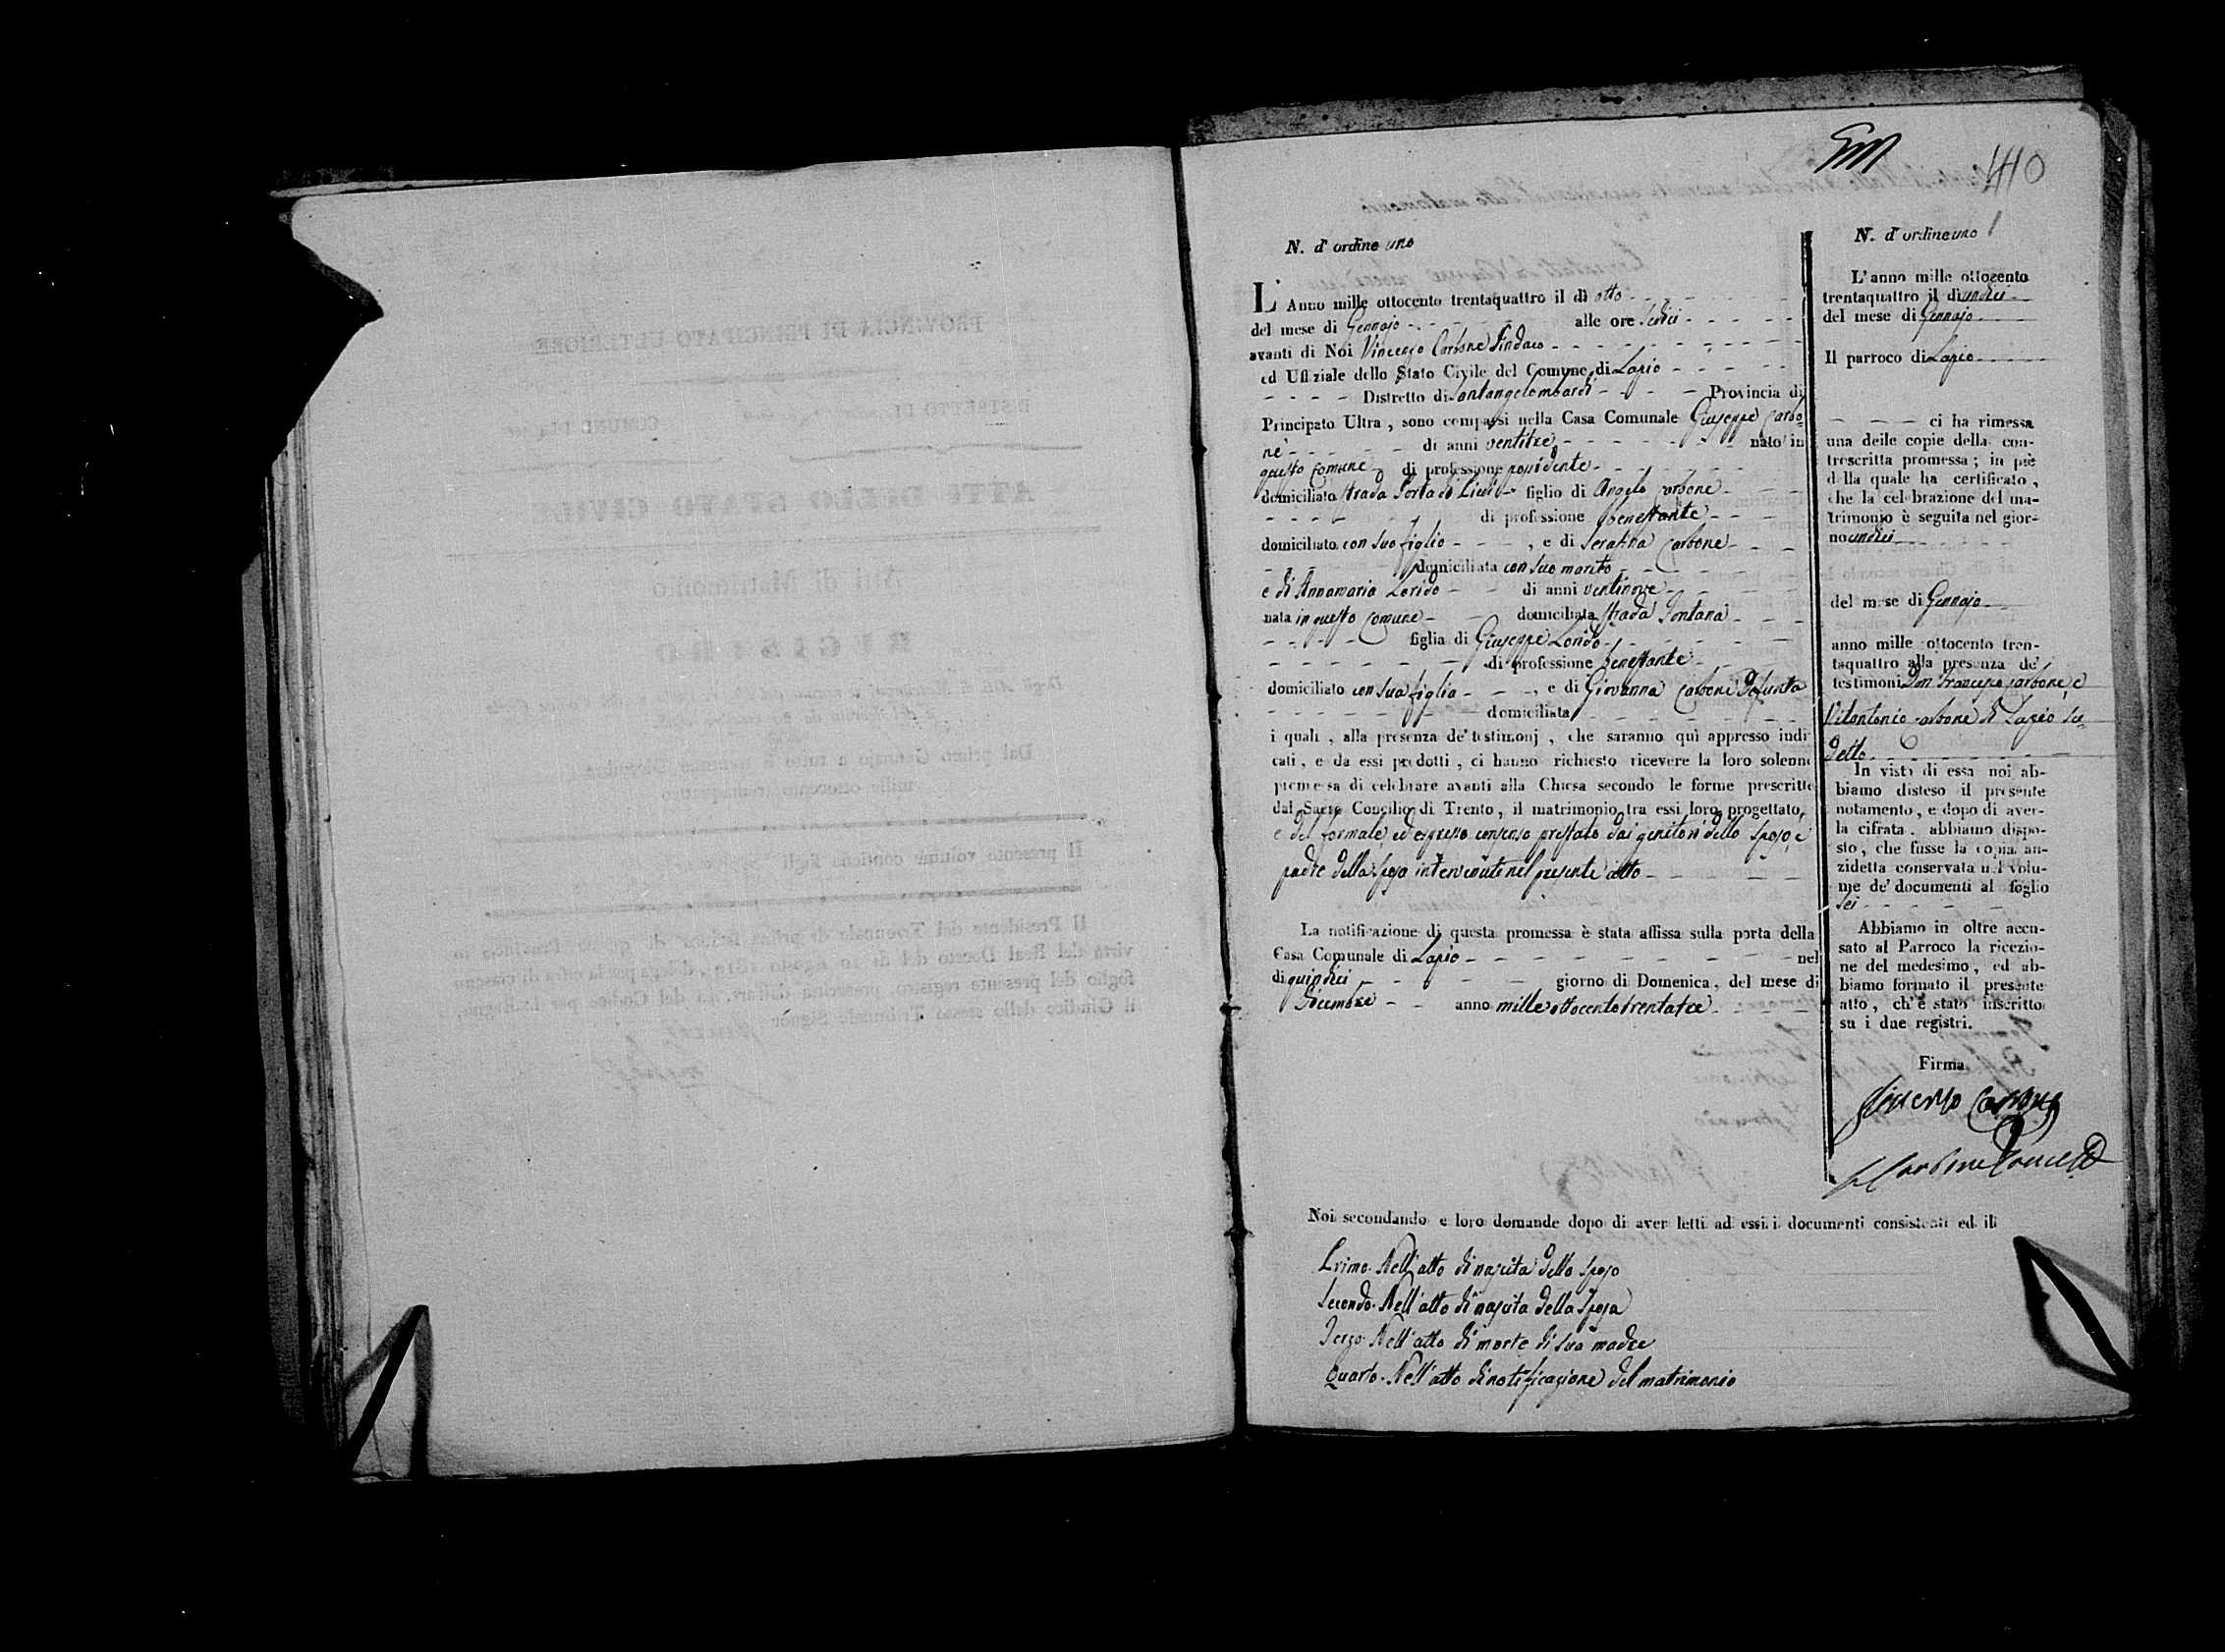 410
N. d'ordine uno
L'Anno mille ottocento trentaquattro il dì otto
del mese di Gennajo alle ore sedici
avanti di Noi Vincenzo Carbone Sindaco
ed Uffiziale dello Stato Civile del Comune di Lapio
Distretto di Santangelombardi Provincia di
Principato Ultra, sono comparsi nella Casa Comunale Giuseppe Carbo-
ne di anni ventitre nato in
questo Comune di professione possidente
domiciliato strada Porta di figlio di Angelo Carbone
di professione benestante
domiciliato con suo figlio , e di Serafina Carbone
domiciliata con suo marito
e di Annamaria di anni ventinove
nata in questo Comune domiciliata strada Fontana
figlia di Giuseppe
di professione benestante
domiciliato con sua figlia , e di Giovanna Carbone Defunta
domiciliata
i quali, alla presenza de' testimonj, che saranno quì appresso indi-
cati, e da essi prodotti, ci hanno richiesto ricevere la loro solenne
promessa di celebrare avanti alla Chiesa secondo le forme prescritte
dal Sacro Concilio di Trento, il matrimonio tra essi loro progettato,
e del formale, ed espresso consenso prestato dai genitori dello sposo, e
padre della sposa intervenuti nel presente atto
La notificazione di questa promessa è stata affissa sulla porta della
Casa Comunale di Lapio nel
di quindici giorno di Domenica, del mese di
Dicembre anno mille ottocento trentatre
N. d'ordine uno 1
L'anno mille ottocento
trentaquattro il dì undici
del mese di Gennajo
Il parroco di Lapio
ci ha rimessa
una delle copie della con-
troscritta promessa; in piè
della quale ha certificato,
che la celebrazione del ma-
trimonio è seguita nel gior-
no undici
del mese di Gennajo
anno mille ottocento tren-
taquattro alla presenza de'
testimoni Don Francesco Carbone, e
Vitantonio Carbone di Lapio su-
detto
In vista di essa noi ab-
biamo disteso il presente
notamento, e dopo di aver-
la cifrata, abbiamo dispo-
sto, che fusse la copia an-
zidetta conservata nel volu-
me de' documenti al foglio
sei
Abbiamo in oltre accu-
sato al Parroco la ricezio-
ne del medesimo, ed ab-
biamo formato il presente
atto, ch'è stato inscritto
su i due registri.
Firma
Vincenzo Carbone
Noi secondando e loro domande dopo di aver letti ad essi i documenti consistenti ed il
Primo. Nell'atto di nascita dello sposo
Secondo. Nell'atto di nascita della sposa
Terzo. Nell'atto di morte di sua madre
Quarto. Nell'atto di notificazione del matrimonio